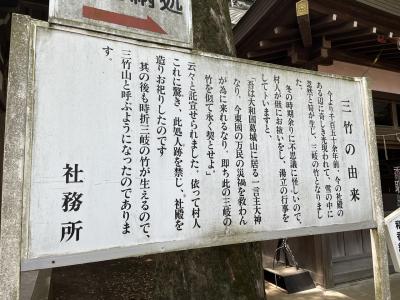 納処
三竹の由来
今より千百五十余年前、今の社殿の
ある辺に奇しき光現われて、雪の中に
芝と筍が生じ、三岐の竹となりまし
た。
冬の時期余りに不思議に怪しいので、
村人が俄にお祓いをし、湯立の行事を
してトいますと
「吾は大和国葛城山に居る一言主大神
なり、今東国の万民の災禍を救わん
が為に来れるなり、即ち此の三岐の
竹を似て永く契とせよ」
云々と託宣せられました。依って村人
これに驚き、此処人跡を禁し、社殿を
造りお祀りしたのです
其の後も時折三岐の竹が生えるので、
三竹山と呼ぶようになったのでありま
す。
社務所